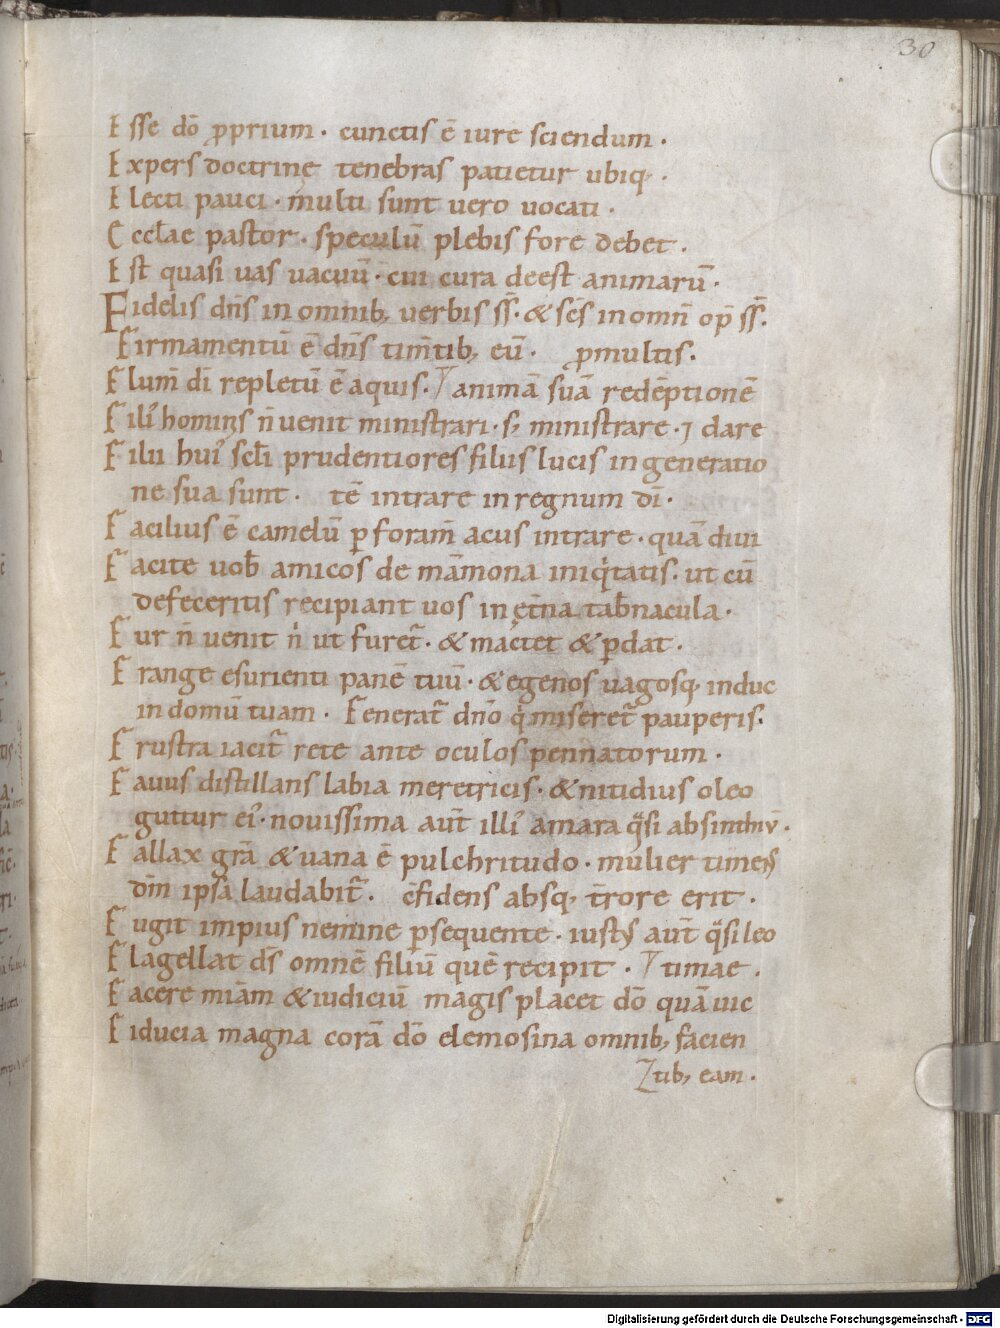 30
Esse dō ꝓprium · cunctis ē iure sciendum ·
Expers doctrinę tenebras patietur ubiq; ·
Electi pauci · multi sunt uero uocati ·
Eccłae pastor · speculū plebis fore debet ·
Est quasi uas uacuū · cui cura deest animarū ·
Fidelis dñs in omnib; uerbis ss̄ · & sc̄s in omn̄ op̄ ss̄ ·
Firmamentū ē dn̄s tim̄tib; eū · ꝓmultis ·
Flum̄ dī repletū ē aquis · animā suā redēptionē
Fili᾽ hominis n̄ uenit ministrari · s; ministrare · ⁊ dare
Filii hui᾽ scłi prudentiores filiis lucis in generatio
ne sua sunt · tē intrare in regnum dī ·
Facilius ē camelū ꝑ foram̄ acus intrare · quā diui
Facite uob̄ amicos de māmona iniqͥtatis · ut cū
defeceritis recipiant uos in ęt̄na tab̄nacula ·
Fur n̄ uenit nͥ ut furet᷑ · & mactet & ꝑdat ·
Frange esurienti panē tuū · & egenos uagosq; induc
in domū tuam · Fenerat᷑ dn̄o qͥ miseret᷑ pauperis ·
Frustra iacit᷑ rete ante oculos pennatorum ·
Fauus distillans labia meretricis · & nitidius oleo
guttur ei᾽ · novissima aut̄ illi᾽ amara qͣsi absinthiū ·
Fallax gr̄a & uana ē pulchritudo · mulier timens
dn̄m ipsa laudabit᷑ · c̄fidens absq; t̄rore erit ·
Fugit impius nemine ꝑsequente · iustus aut̄ qͣsi leo
Flagellat ds̄ omnē filiū quē recipit · timae ·
Facere mīam & iudiciū magis placet dō quā uic
Fiducia magna corā dō elemosina omnib; facien
tib; eam ·
Digitalisierung gefördert durch die Deutsche Forschungsgemeinschaft - DFG